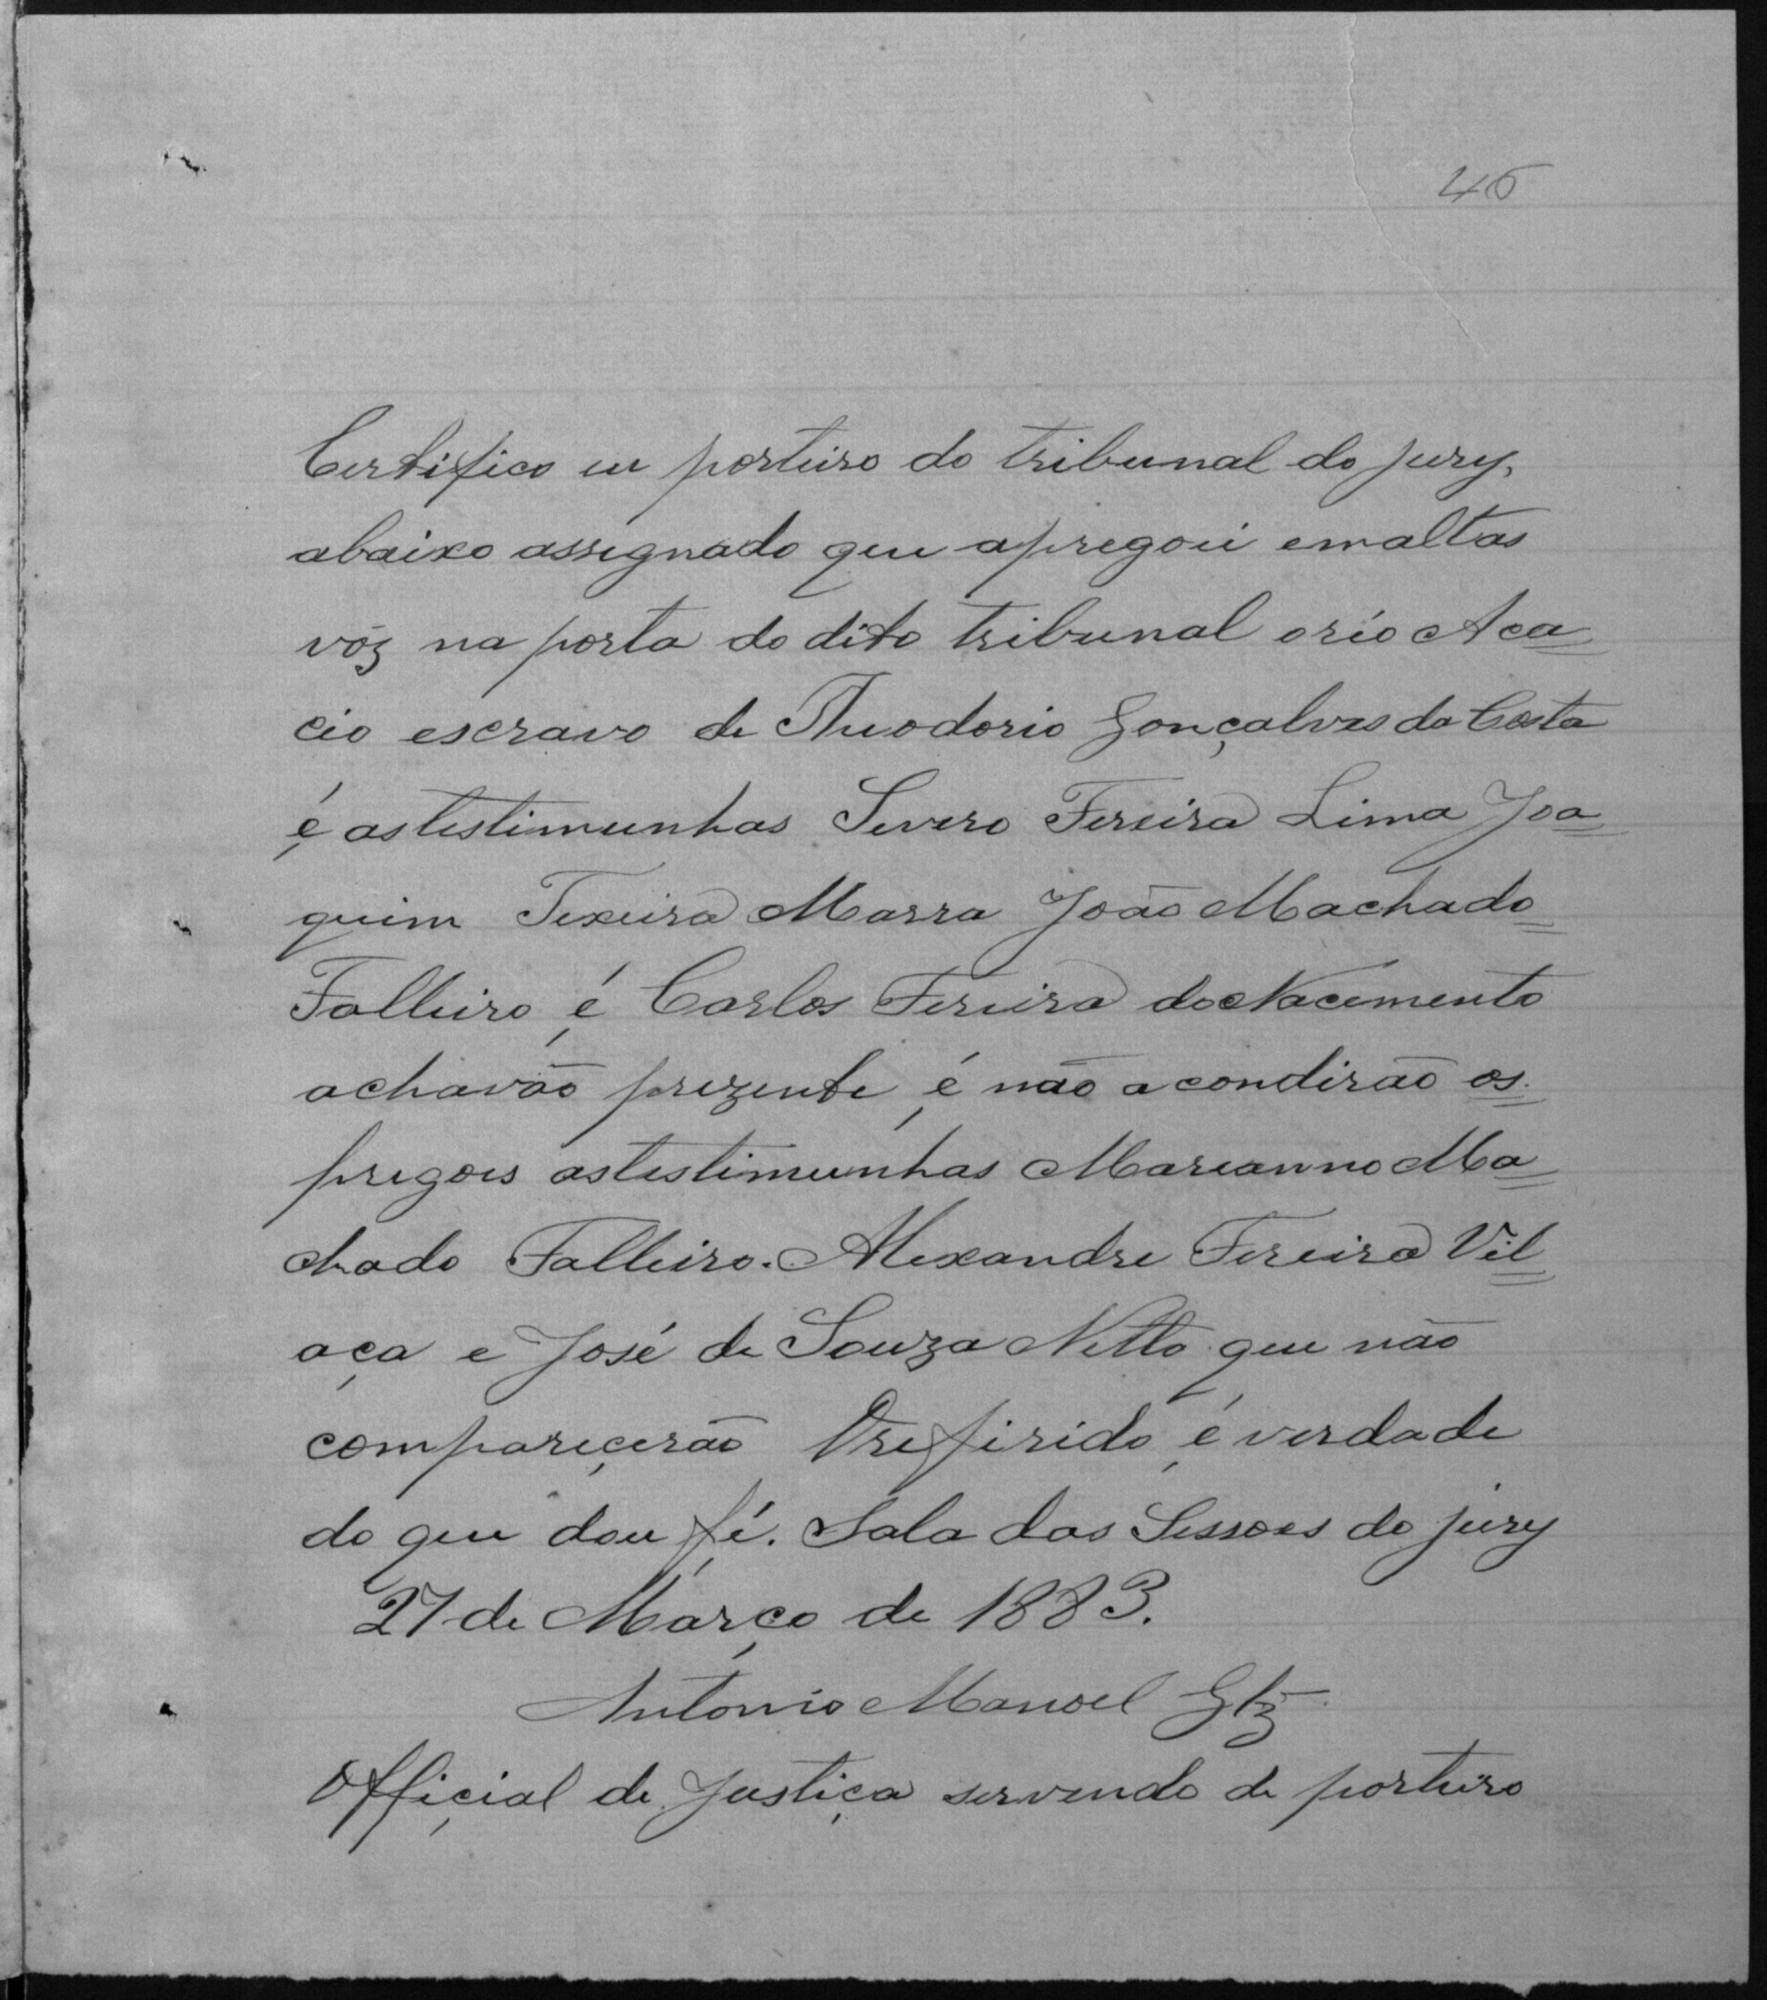 46
Certifico eu porteiro do tribunal do jury,
abaixo assignado que apregoei em altas
vóz na porta do dito tribunal o réo Aca=
cio escravo de Theodorio Gonçalves da Costa
é as testimunhas Severo Fereira Lima Joa=
quim Texeira Marra João Machado=
Falleiro é Carlos Fereira do Nacemento
achavão prezente é não acondirão os=
pregois as testimunhas Mareanno Ma=
chado Falleiro. Alexandre Fereira Vil=
aça e José de Souza Netto que não
compareçerão O refirido é verdade
do que dou fé. Sala das Sessoes do jury
27 de Março de 1883.
Antonio Manoel Glz
Offiçial de Justiça servendo de porteiro